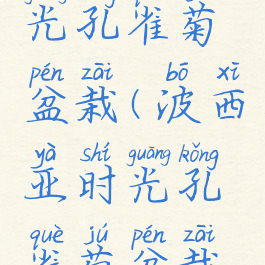 光孔雀菊
pén zāi bō xī
盆栽(波西
yà shí guāng kǒng
亚时光孔
què jú pén zāi
雀菊盆栽